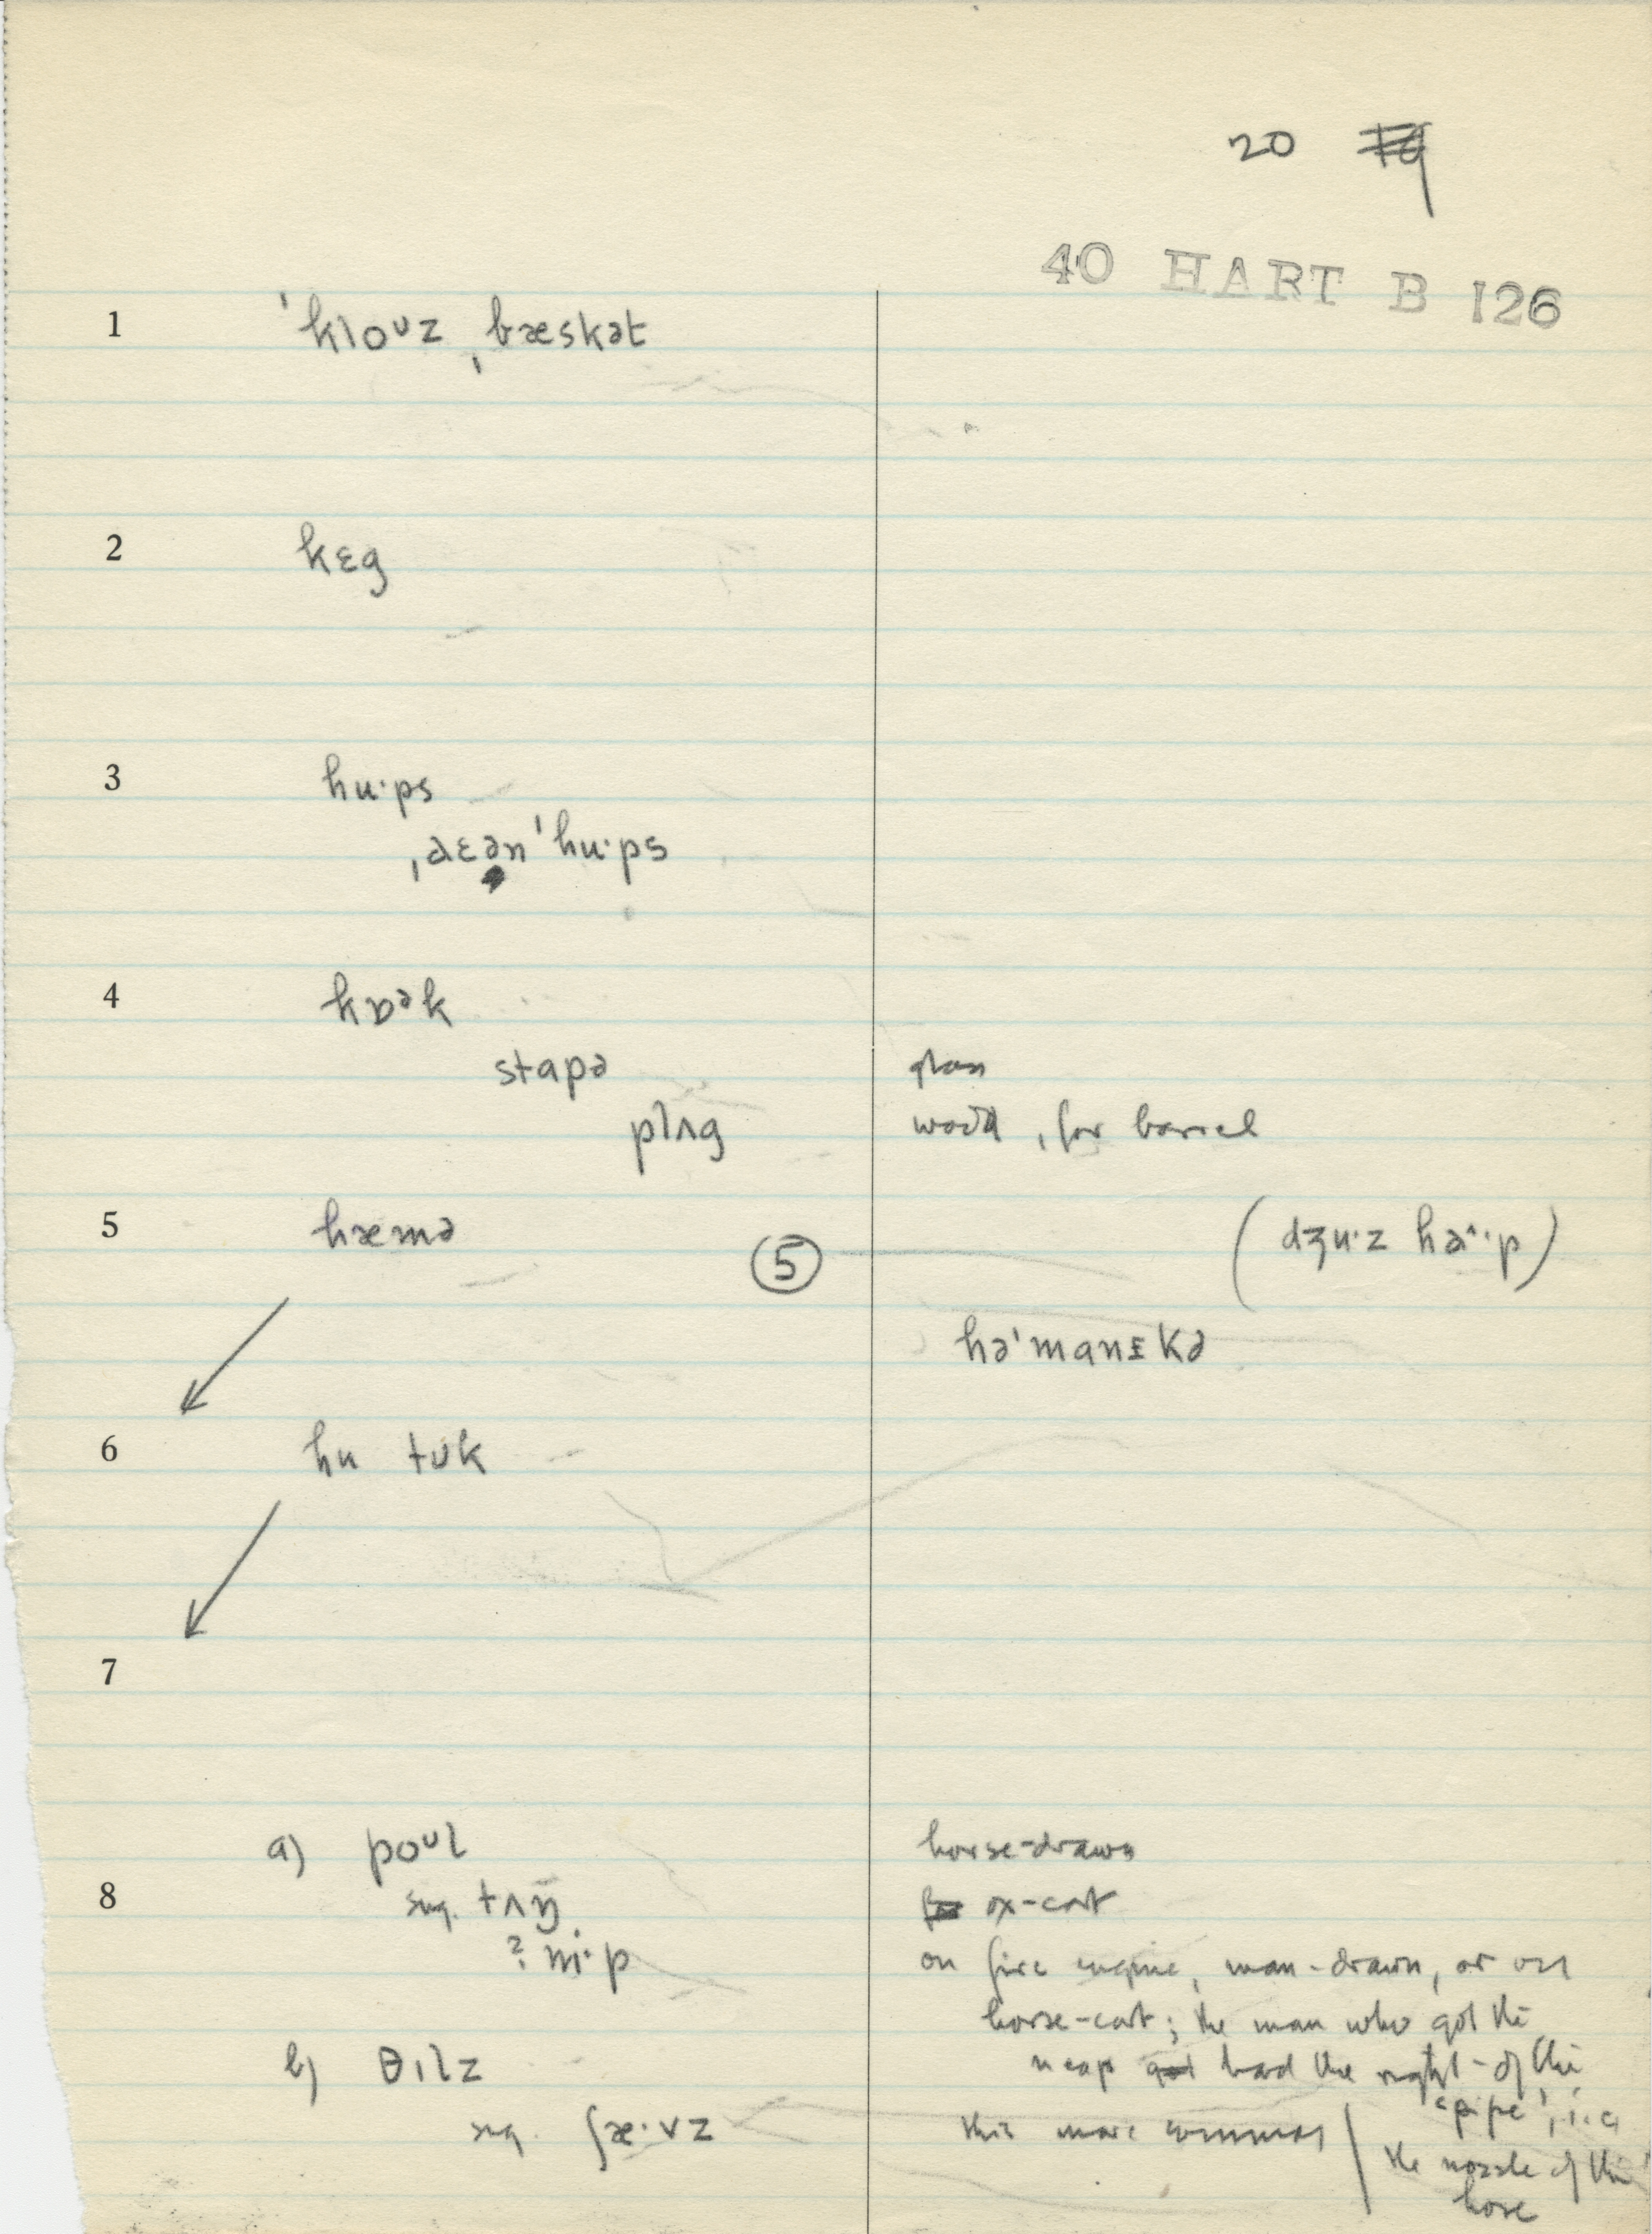 20
40 HART B 126
1 ˈklouz ˌbæskət
2 kɛg
3 hu·ps
ˌaɛən ˈhu·ps
4 kɒək
stapə glass
plʌg wood, for barrel
5 hæmə ⑤ (dʒu·z ha^·p)
hə'manɪkə
6 hu tʊk
7
a) poʊl horse-drawn
8 sug. tʌŋ ox-cart
? ni·p on fire engine, man-drawn, or on
horse-cart; the man who got the
b) θɪlz neap had the right-of the
'pipe', i.e.
sug. ʃæ·vz this more common
the nozzle of the
hose